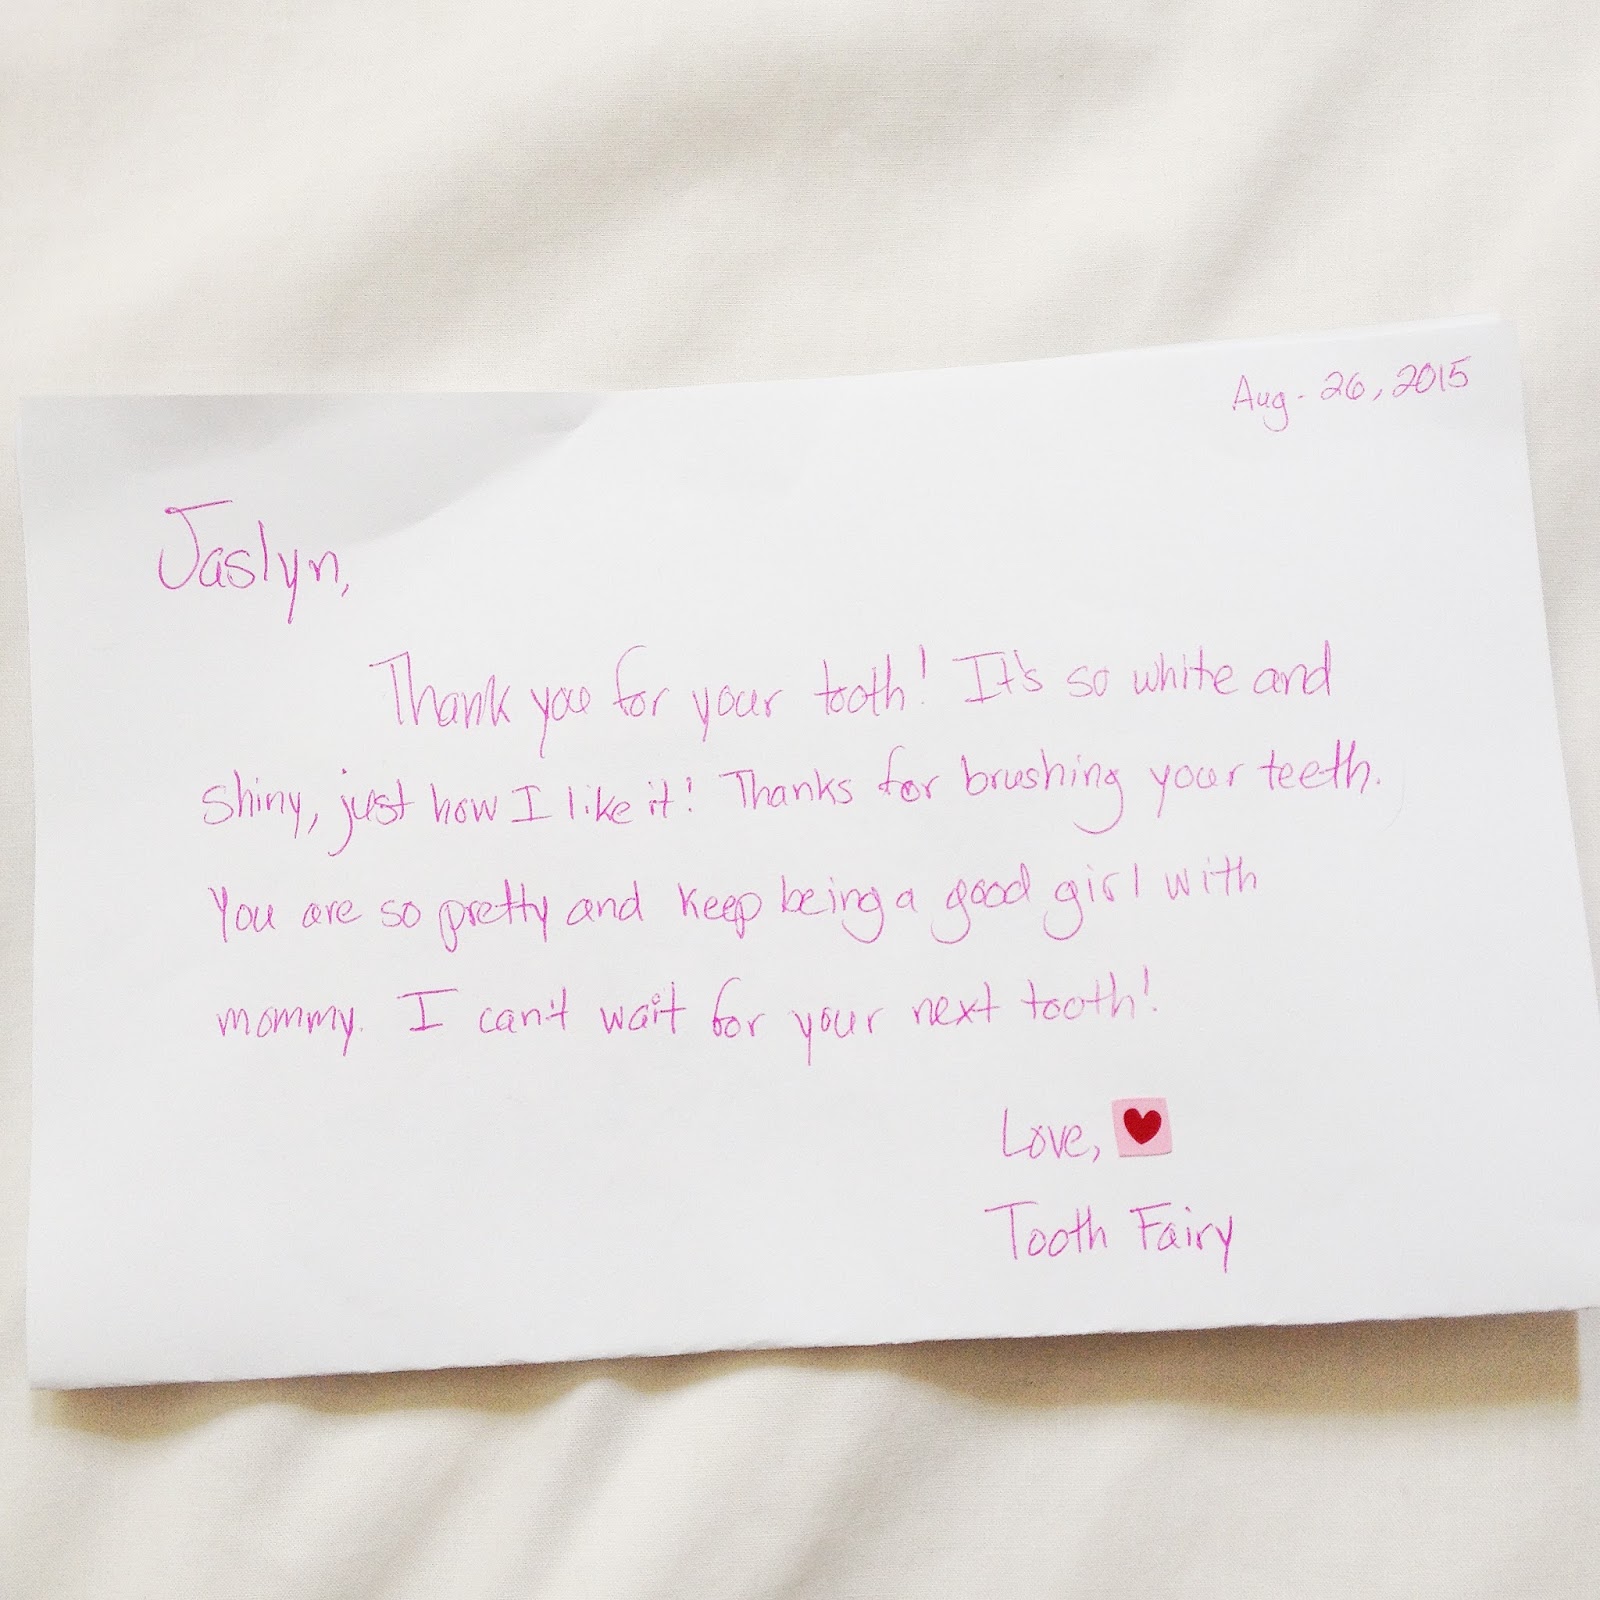 Aug. 26, 2015
Jaslyn,
Thank you for your tooth! It's so white and
shiny, just how I like it! Thanks for brushing your teeth.
You are so pretty and keep being a good girl with
mommy. I can't wait for your next tooth!
Love,
Tooth Fairy